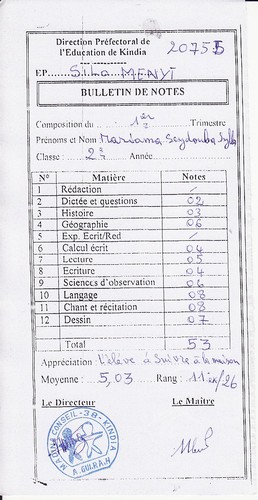 Direction Préfectoral de
l'Education de Kindia
2075
EP....Silo MENYI
BULLETIN DE NOTES
Composition du 1er Trimestre
Prénoms et Nom Mariama Seydouba Sylla
Classe : 2è Année
N° Matière Notes
1 Rédaction /
2 Dictée et questions 02
3 Histoire 03
4 Géographie 06
5 Exp. Ecrit/Red /
6 Calcul écrit 04
7 Lecture 05
8 Ecriture 04
9 Sciences d'observation 06
10 Langage 08
11 Chant et récitation 08
12 Dessin 07
Total 53
Appréciation : L'élève à suivre à la maison
Moyenne : 5,03 Rang : 11ex/26
Le Directeur Le Maître
CONSEIL-3R-KINDIA